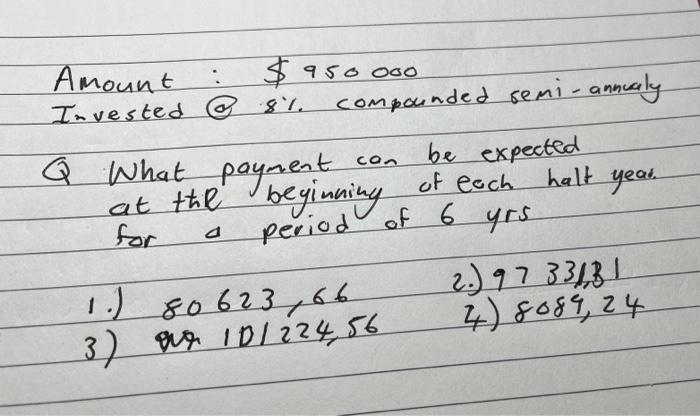 Amount : $ 950 000
Invested @ 8%. compounded semi-annualy
Q What payment can be expected
at the beginning of each half year.
for a period of 6 yrs
1.) 80 623,66 2.) 97 331,31
3) 101 224,56 4) 8089,24